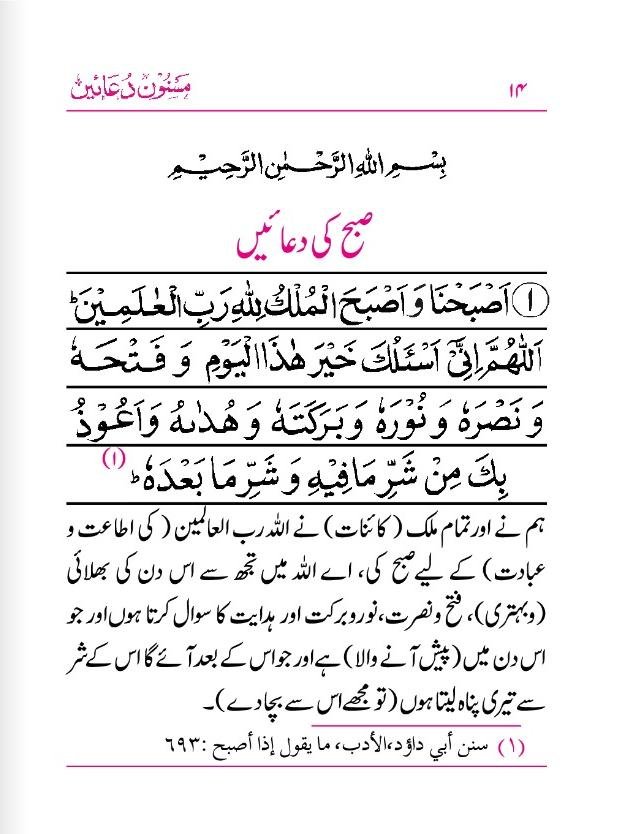 ۱۴ مَسْنُون دُعَائیں
بِسْمِ اللهِ الرَّحْمٰنِ الرَّحِيْمِ
صبح کی دعائیں
① اَصْبَحْنَا وَ اَصْبَحَ الْمُلْكُ لِلّٰهِ رَبِّ الْعٰلَمِيْنَ ؕ
اَللّٰهُمَّ اِنِّىْٓ اَسْئَلُكَ خَيْرَ هٰذَا الْيَوْمِ وَ فَتْحَهٗ
وَ نَصْرَهٗ وَ نُوْرَهٗ وَ بَرَكَتَهٗ وَ هُدٰىهُ وَ اَعُوْذُ
بِكَ مِنْ شَرِّ مَا فِيْهِ وَ شَرِّ مَا بَعْدَهٗ ؕ (۱)
ہم نے اور تمام ملک (کائنات) نے اللہ رب العالمین (کی اطاعت و
عبادت) کے لیے صبح کی، اے اللہ میں تجھ سے اس دن کی بھلائی
(و بہتری)، فتح و نصرت، نور و برکت اور ہدایت کا سوال کرتا ہوں اور جو
اس دن میں (پیش آنے والا) ہے اور جو اس کے بعد آئے گا اس کے شر
سے تیری پناہ لیتا ہوں (تو مجھے اس سے بچا دے)۔
(١) سنن أبي داؤد، الأدب، ما يقول إذا أصبح :٦٩٣